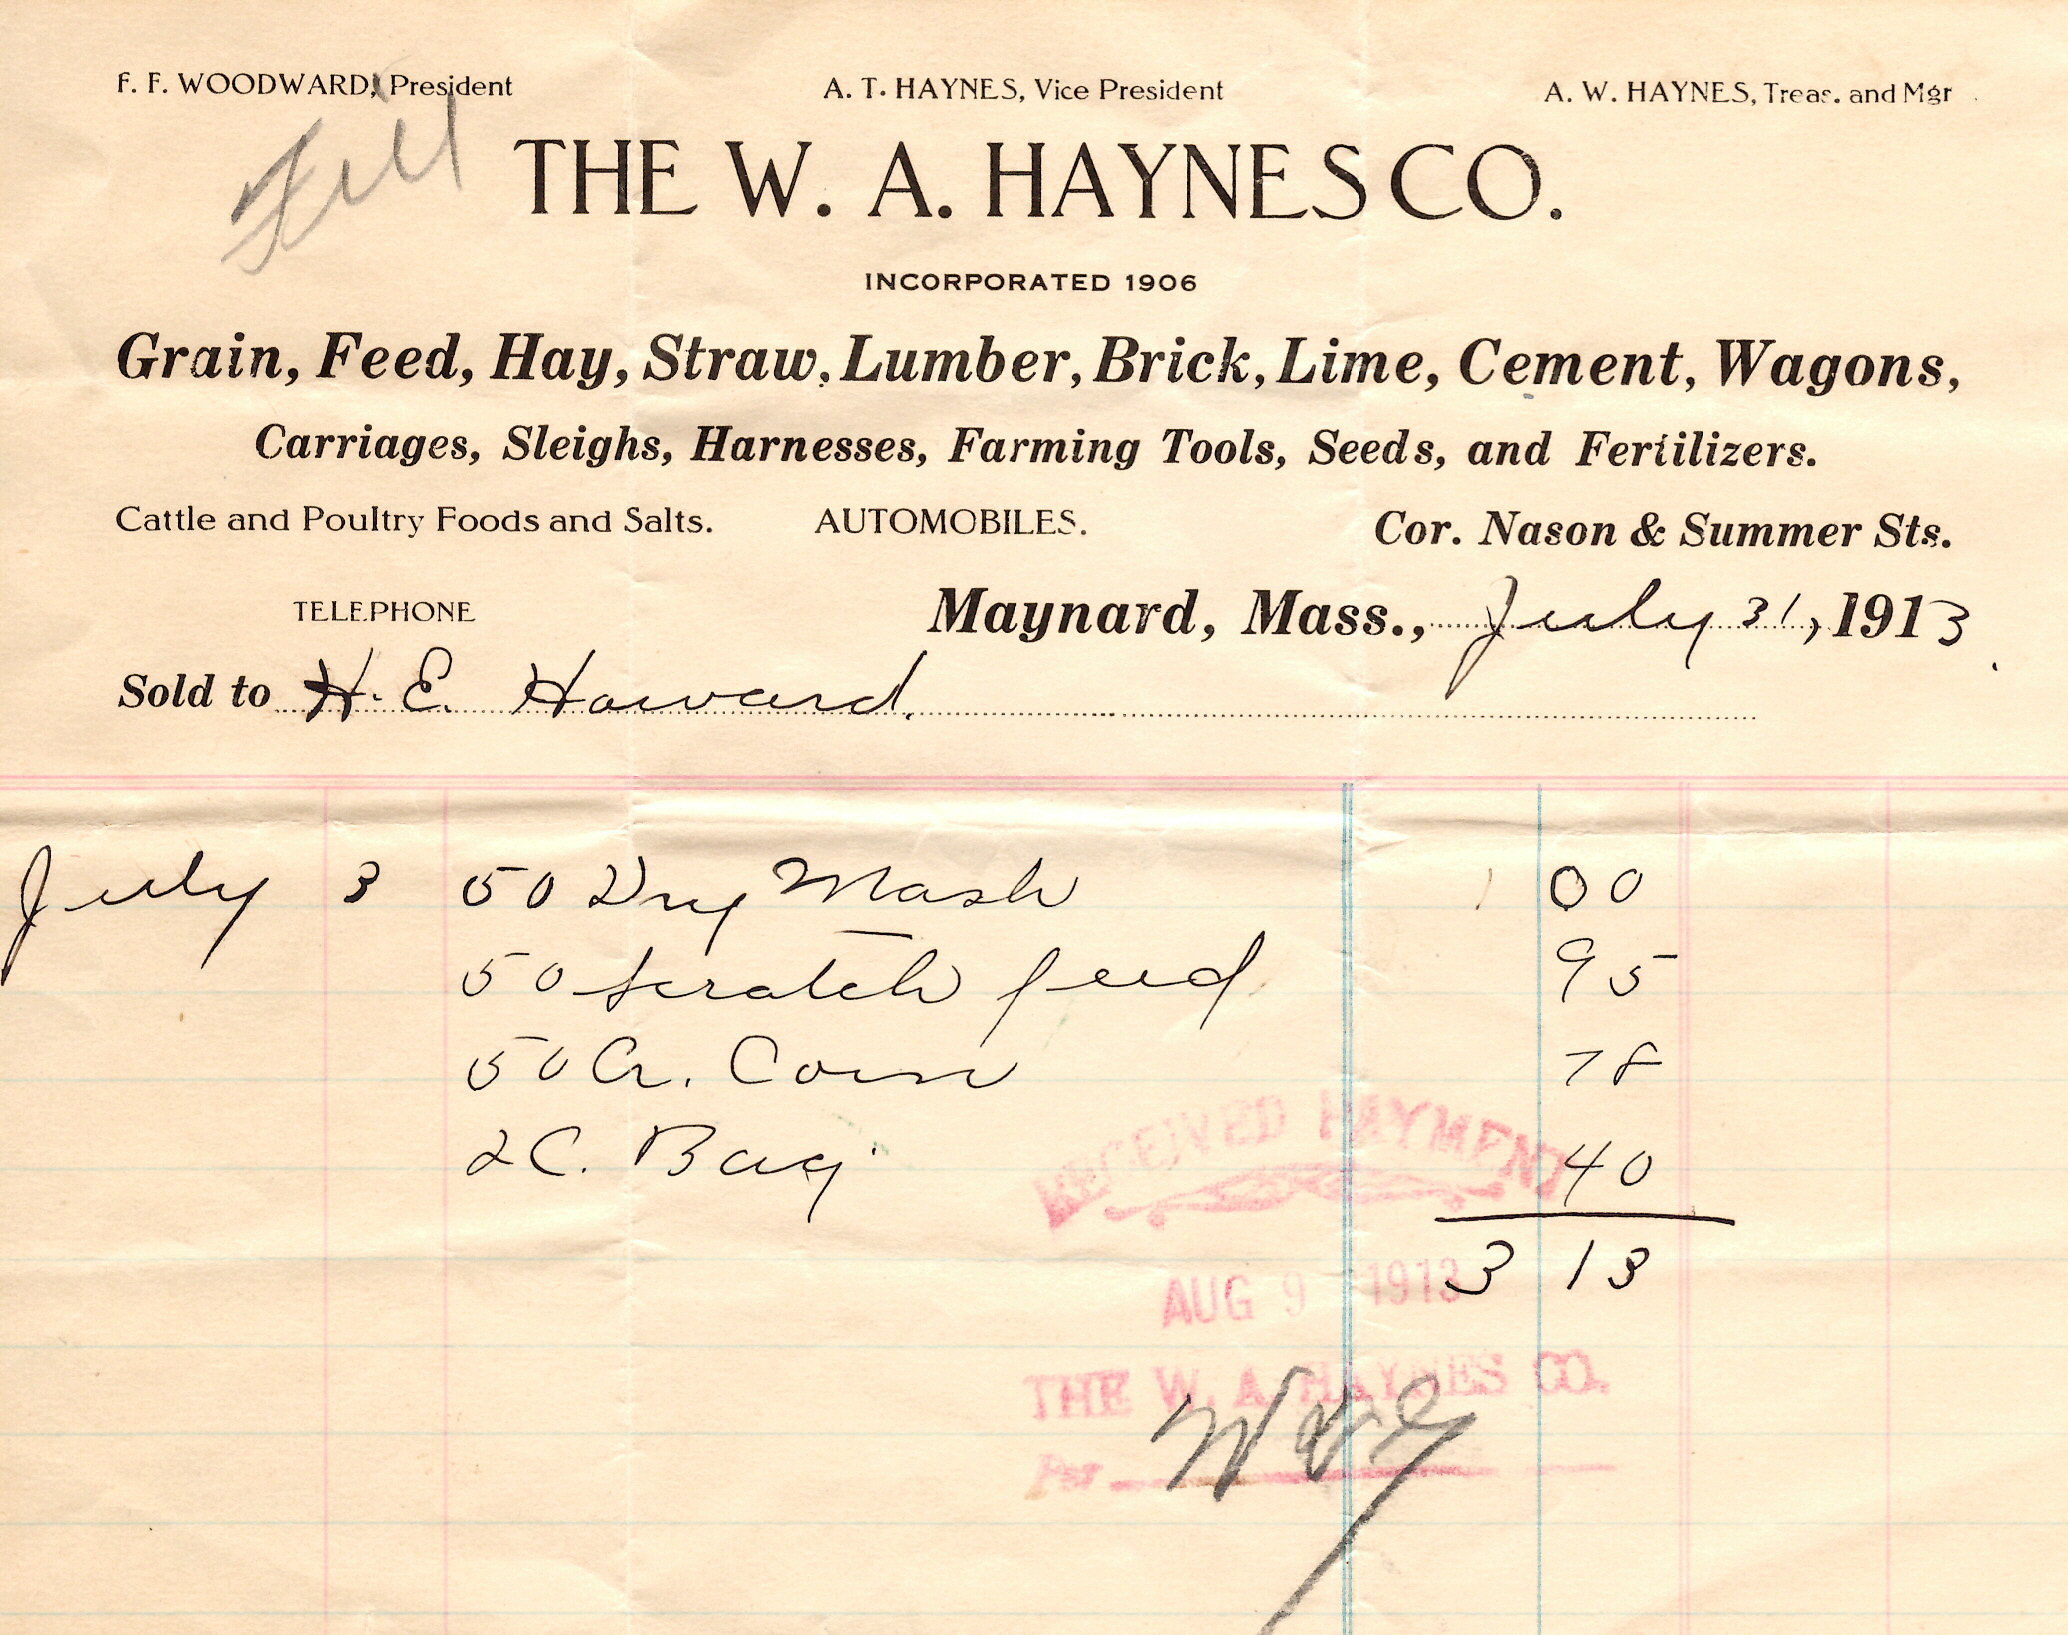 F. F. WOODWARD, President A. T. HAYNES, Vice President A. W. HAYNES, Treas. and Mgr.
THE W. A. HAYNES CO.
INCORPORATED 1906
Grain, Feed, Hay, Straw, Lumber, Brick, Lime, Cement, Wagons,
Carriages, Sleighs, Harnesses, Farming Tools, Seeds, and Fertilizers.
Cattle and Poultry Foods and Salts. AUTOMOBILES. Cor. Nason & Summer Sts.
TELEPHONE
Maynard, Mass., July 31, 1913
Sold to H. E. Howard.
July 3 50 Dry Mash 1 00
50 Scratch feed 95
50 Cr. Corn 78
2 C. Bag. 40
3 13
RECEIVED PAYMENT
AUG 9 1913
THE W. A. HAYNES CO.
Per